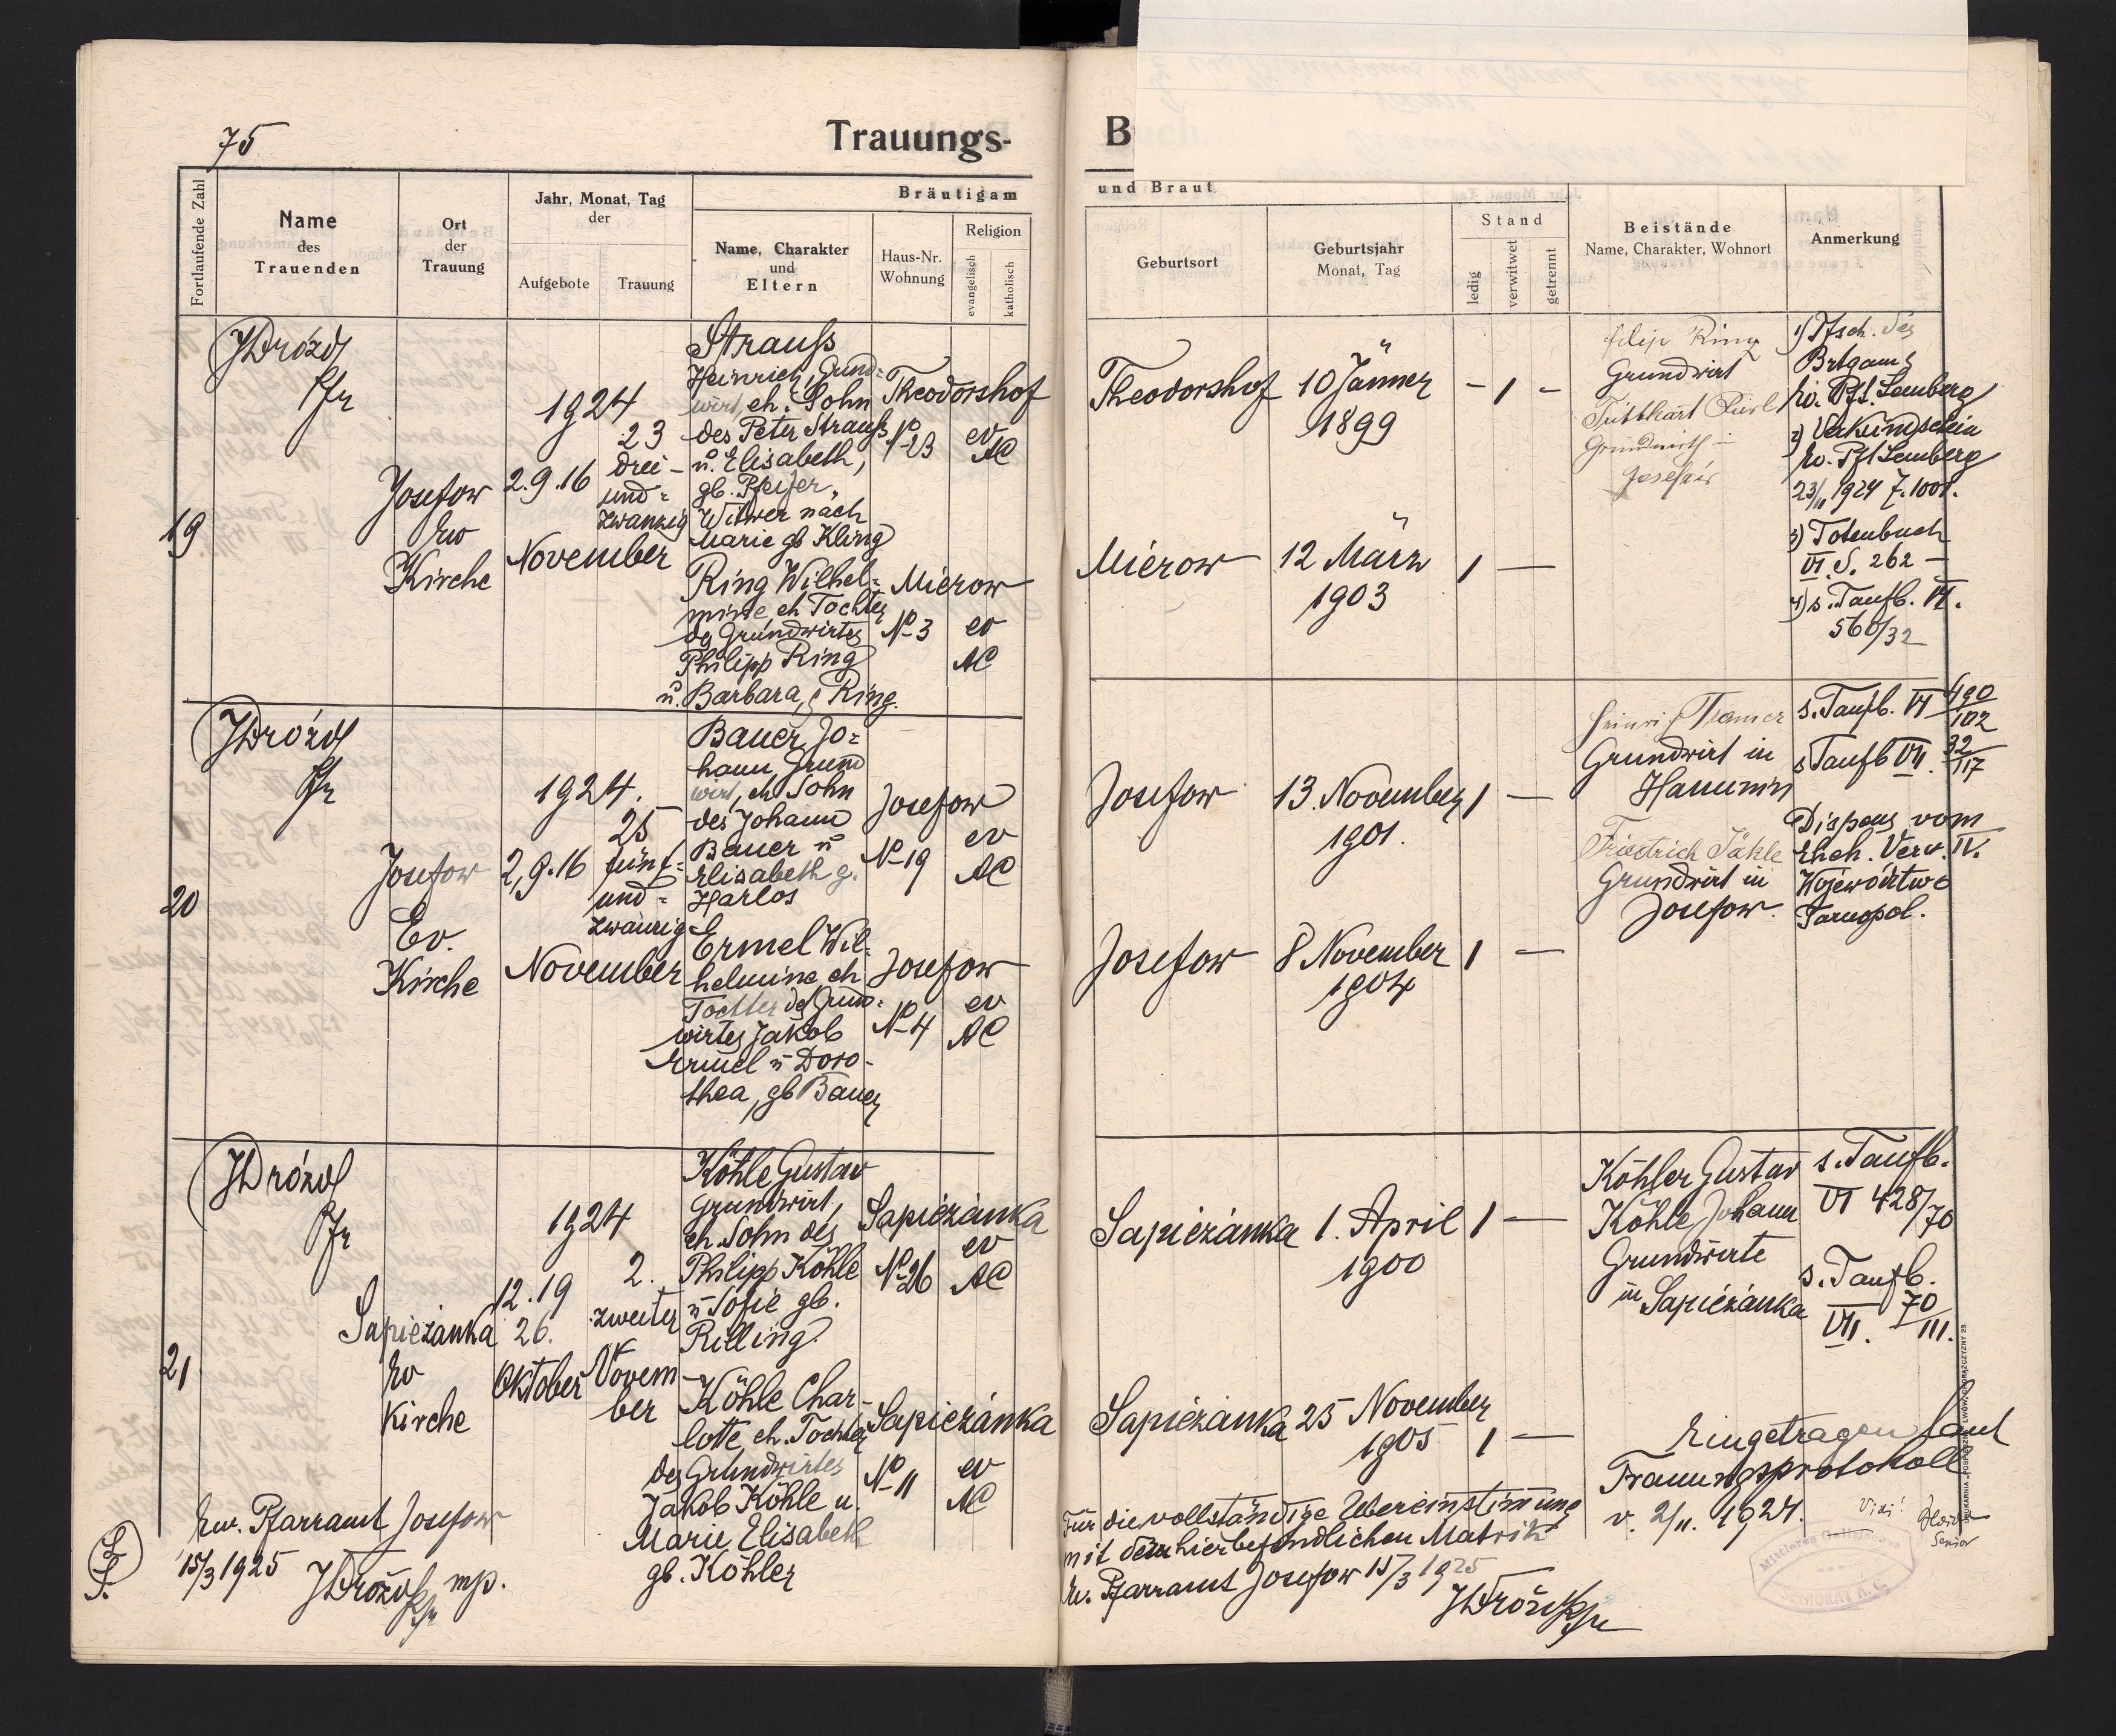 75
Trauungs-
B
Fortlaufende Zahl
Name
des
Trauenden
Ort
der
Trauung
Jahr, Monat, Tag
der
Aufgebote
Trauung
Bräutigam
und Braut
Name, Charakter
und
Eltern
Haus-Nr.
Wohnung
Religion
evangelisch
katholisch
Geburtsort
Geburtsjahr
Monat, Tag
Stand
ledig
verwitwet
getrennt
Beistände
Name, Charakter, Wohnort
Anmerkung
19
JDrózd
Pfr
Josefow
ev
Kirche
1924
2.9.16
23
drei-
und-
zwanzig
November
Strauß
Heinrich, Grund-
wirt, eh. Sohn
des Peter Strauß
u. Elisabeth,
gb. Pfeifer,
Witwer nach
Marie gb Kling
Theodorshof
No 23
ev
AC
Theodorshof
10 Jänner
1899
- 1 -
Ring Wilhel-
mine, eh Tochter
des Grundwirtes
Philipp Ring
u. Barbara, g Ring.
Mierow
No 3
ev
AC
Mierow
12 März
1903
1 —
Filip Ring
Grundwirt
Grundwirth in
Josefów
1) Tfsch. des
Brtgams
Ev. Pf. Lemberg
2) Verkündschein
Ev. Pf Lemberg
23/11 1924 Z. 1001.
3) Totenbuch
VI. S. 262 —
4) s. Taufb. VI.
560/32
20
JDrózd
Pfr
Josefow
Ev.
Kirche
1924.
2,9.16
25
fünf-
und-
zwanzig
November
Bauer Jo-
hann Grund
wirt, eh Sohn
des Johann
Bauer u
Elisabeth g.
Harlos
Josefow
No 19
ev
AC
Josefow
13. November
1901.
1 —
Ermel Wil-
helmine, eh
Tochter des Grund-
wirtes Jakob
Ermel u Doro-
thea, gb Bauer
Josefow
No 4
ev
AC
Josefow
8 November
1904
1 —
Grundwirt in
Hanunin
Friedrich Jähle
Grundwirt in
Josefow.
s. Taufb. VI 490/102
s Taufb VII. 32/117
Dispens vom
Eheh. Verw. IV.
Wojewódtwo
Tarnopol.
21
JDrózd
Pfr
Sapieżanka
ev
Kirche
1924
12.19
26.
Oktober
2.
zweiter
Novem-
ber
Köhle Gustav
Grundwirt,
eh. Sohn des
Philipp Köhle
u Sofie gb.
Rilling
Sapieżanka
No 26
ev
AC
Sapieżanka
1. April
1900
1 —
Köhle Char-
lotte, eh. Tochter
des Grundwirtes
Jakob Köhle u.
Marie Elisabeth
gb. Köhler
Sapieżanka
No 11
ev
AC
Sapieżanka
25 November
1905
1 —
Köhler Gustav
Köhle Johann
Grundwirte
in Sapieżanka
s. Taufb.
VI 428/70
s. Taufb.
VII. 70/III.
Eingetragen laut
Trauungsprotokoll
v. 2/11. 1924.
Vidi!
Senior
L.
S.
Ew. Pfarramt Josefow
15/3 1925
JDrózd Pfr mp.
Für die vollständige Übereinstimmung
mit dem hierbefindlichen Matrik
Ev. Pfarramt Josefow 15/3 1925
JDrózd Pfr
SENIORAT A. C.